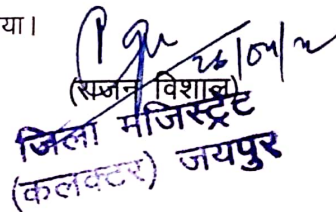 या।
26/04/
(सजन विशाल)
जिला मजिस्ट्रेट
(कलक्टर) जयपुर